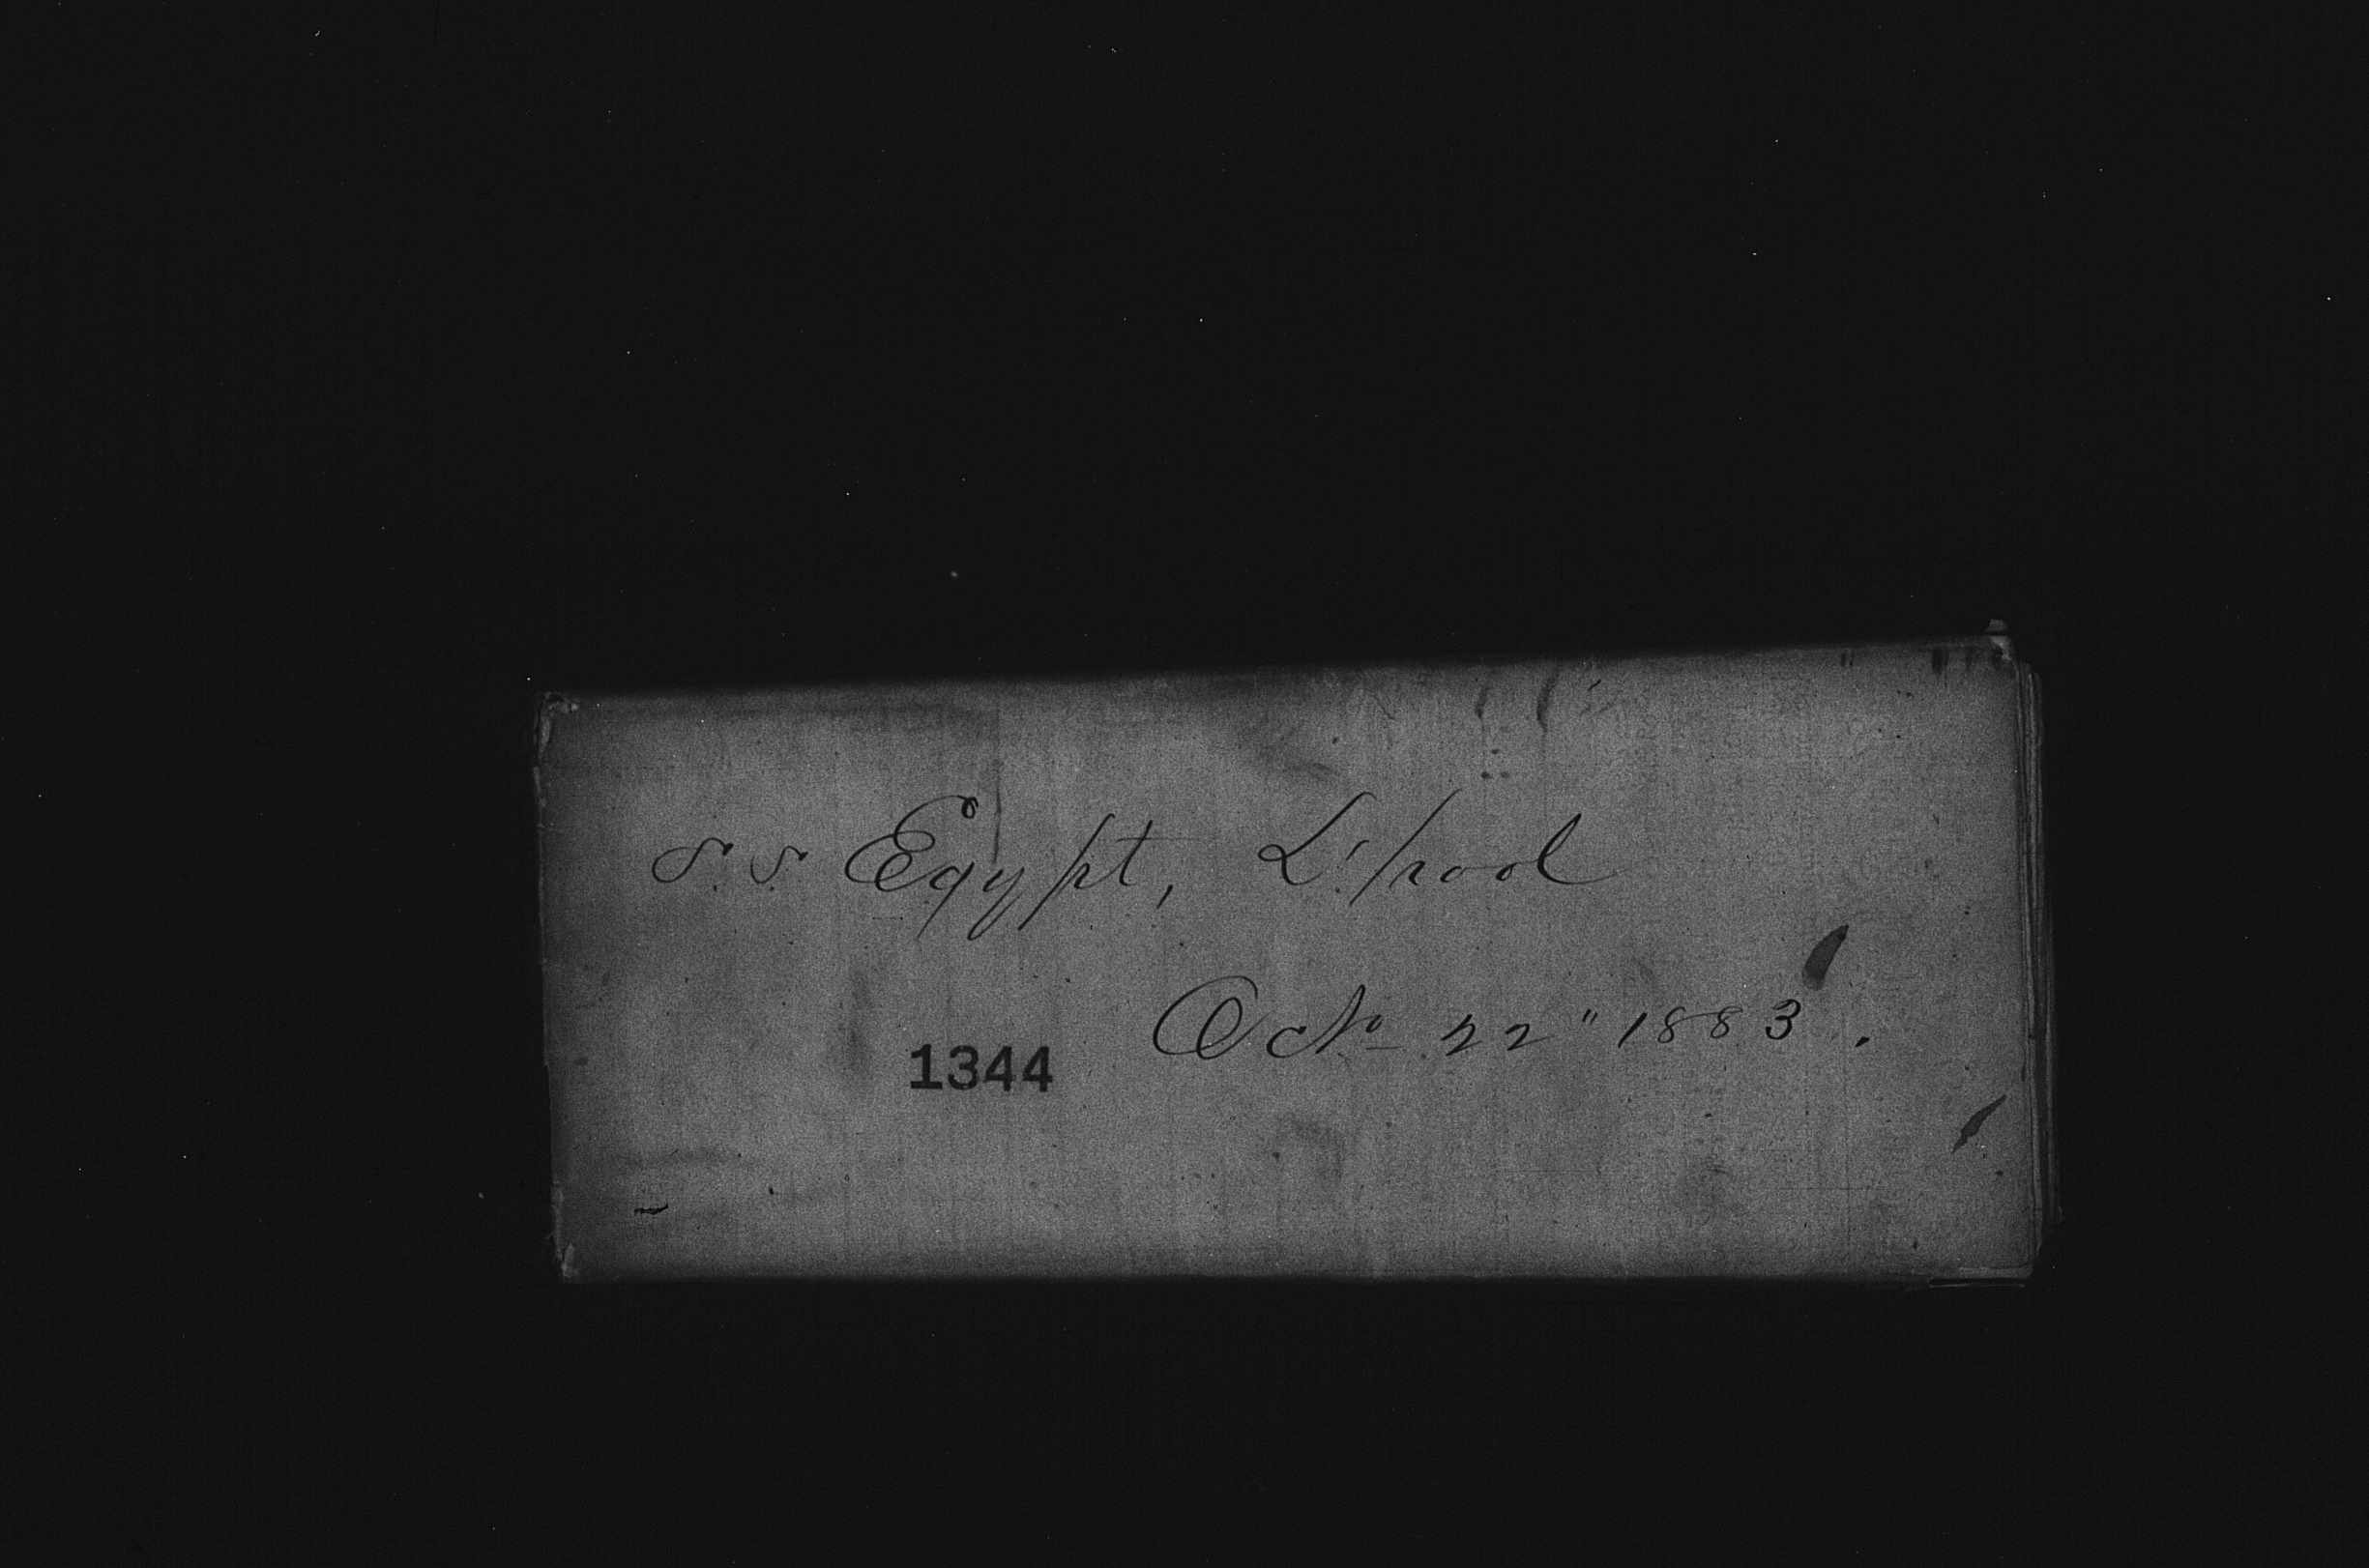 S.S. Egypt, L'pool
Octo 22" 1883.
1344